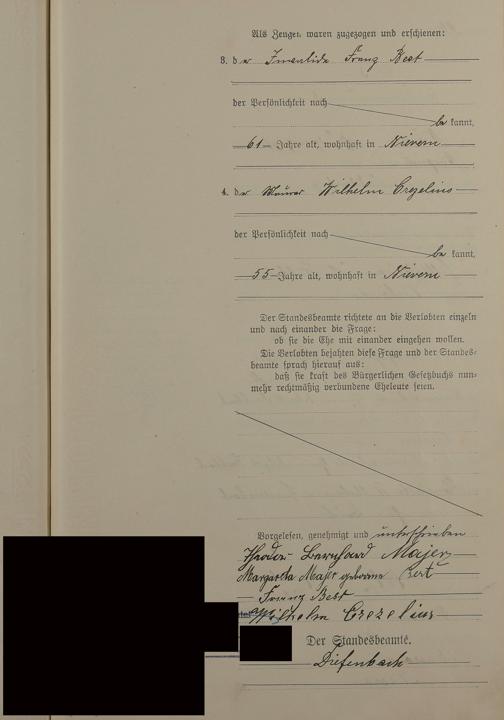 Als Zeugen waren zugezogen und erschienen:
3. der Invalide Franz Best
der Persönlichkeit nach
be kannt,
61 Jahre alt, wohnhaft in Nievern
4. der Maurer Wilhelm Crezelius
der Persönlichkeit nach
be kannt,
55 Jahre alt, wohnhaft in Nievern
Der Standesbeamte richtete an die Verlobten einzeln
und nach einander die Frage:
ob sie die Ehe mit einander eingehen wollen.
Die Verlobten bejahten diese Frage und der Standes-
beamte sprach hierauf aus:
daß sie kraft des Bürgerlichen Gesetzbuchs nun-
mehr rechtmäßig verbundene Eheleute seien.
Vorgelesen, genehmigt und unterschrieben
Theodor Bernhard Majer
Margareta Majer geborene
Franz Best
Wilhelm Crezelius
Der Standesbeamte.
Diefenbach